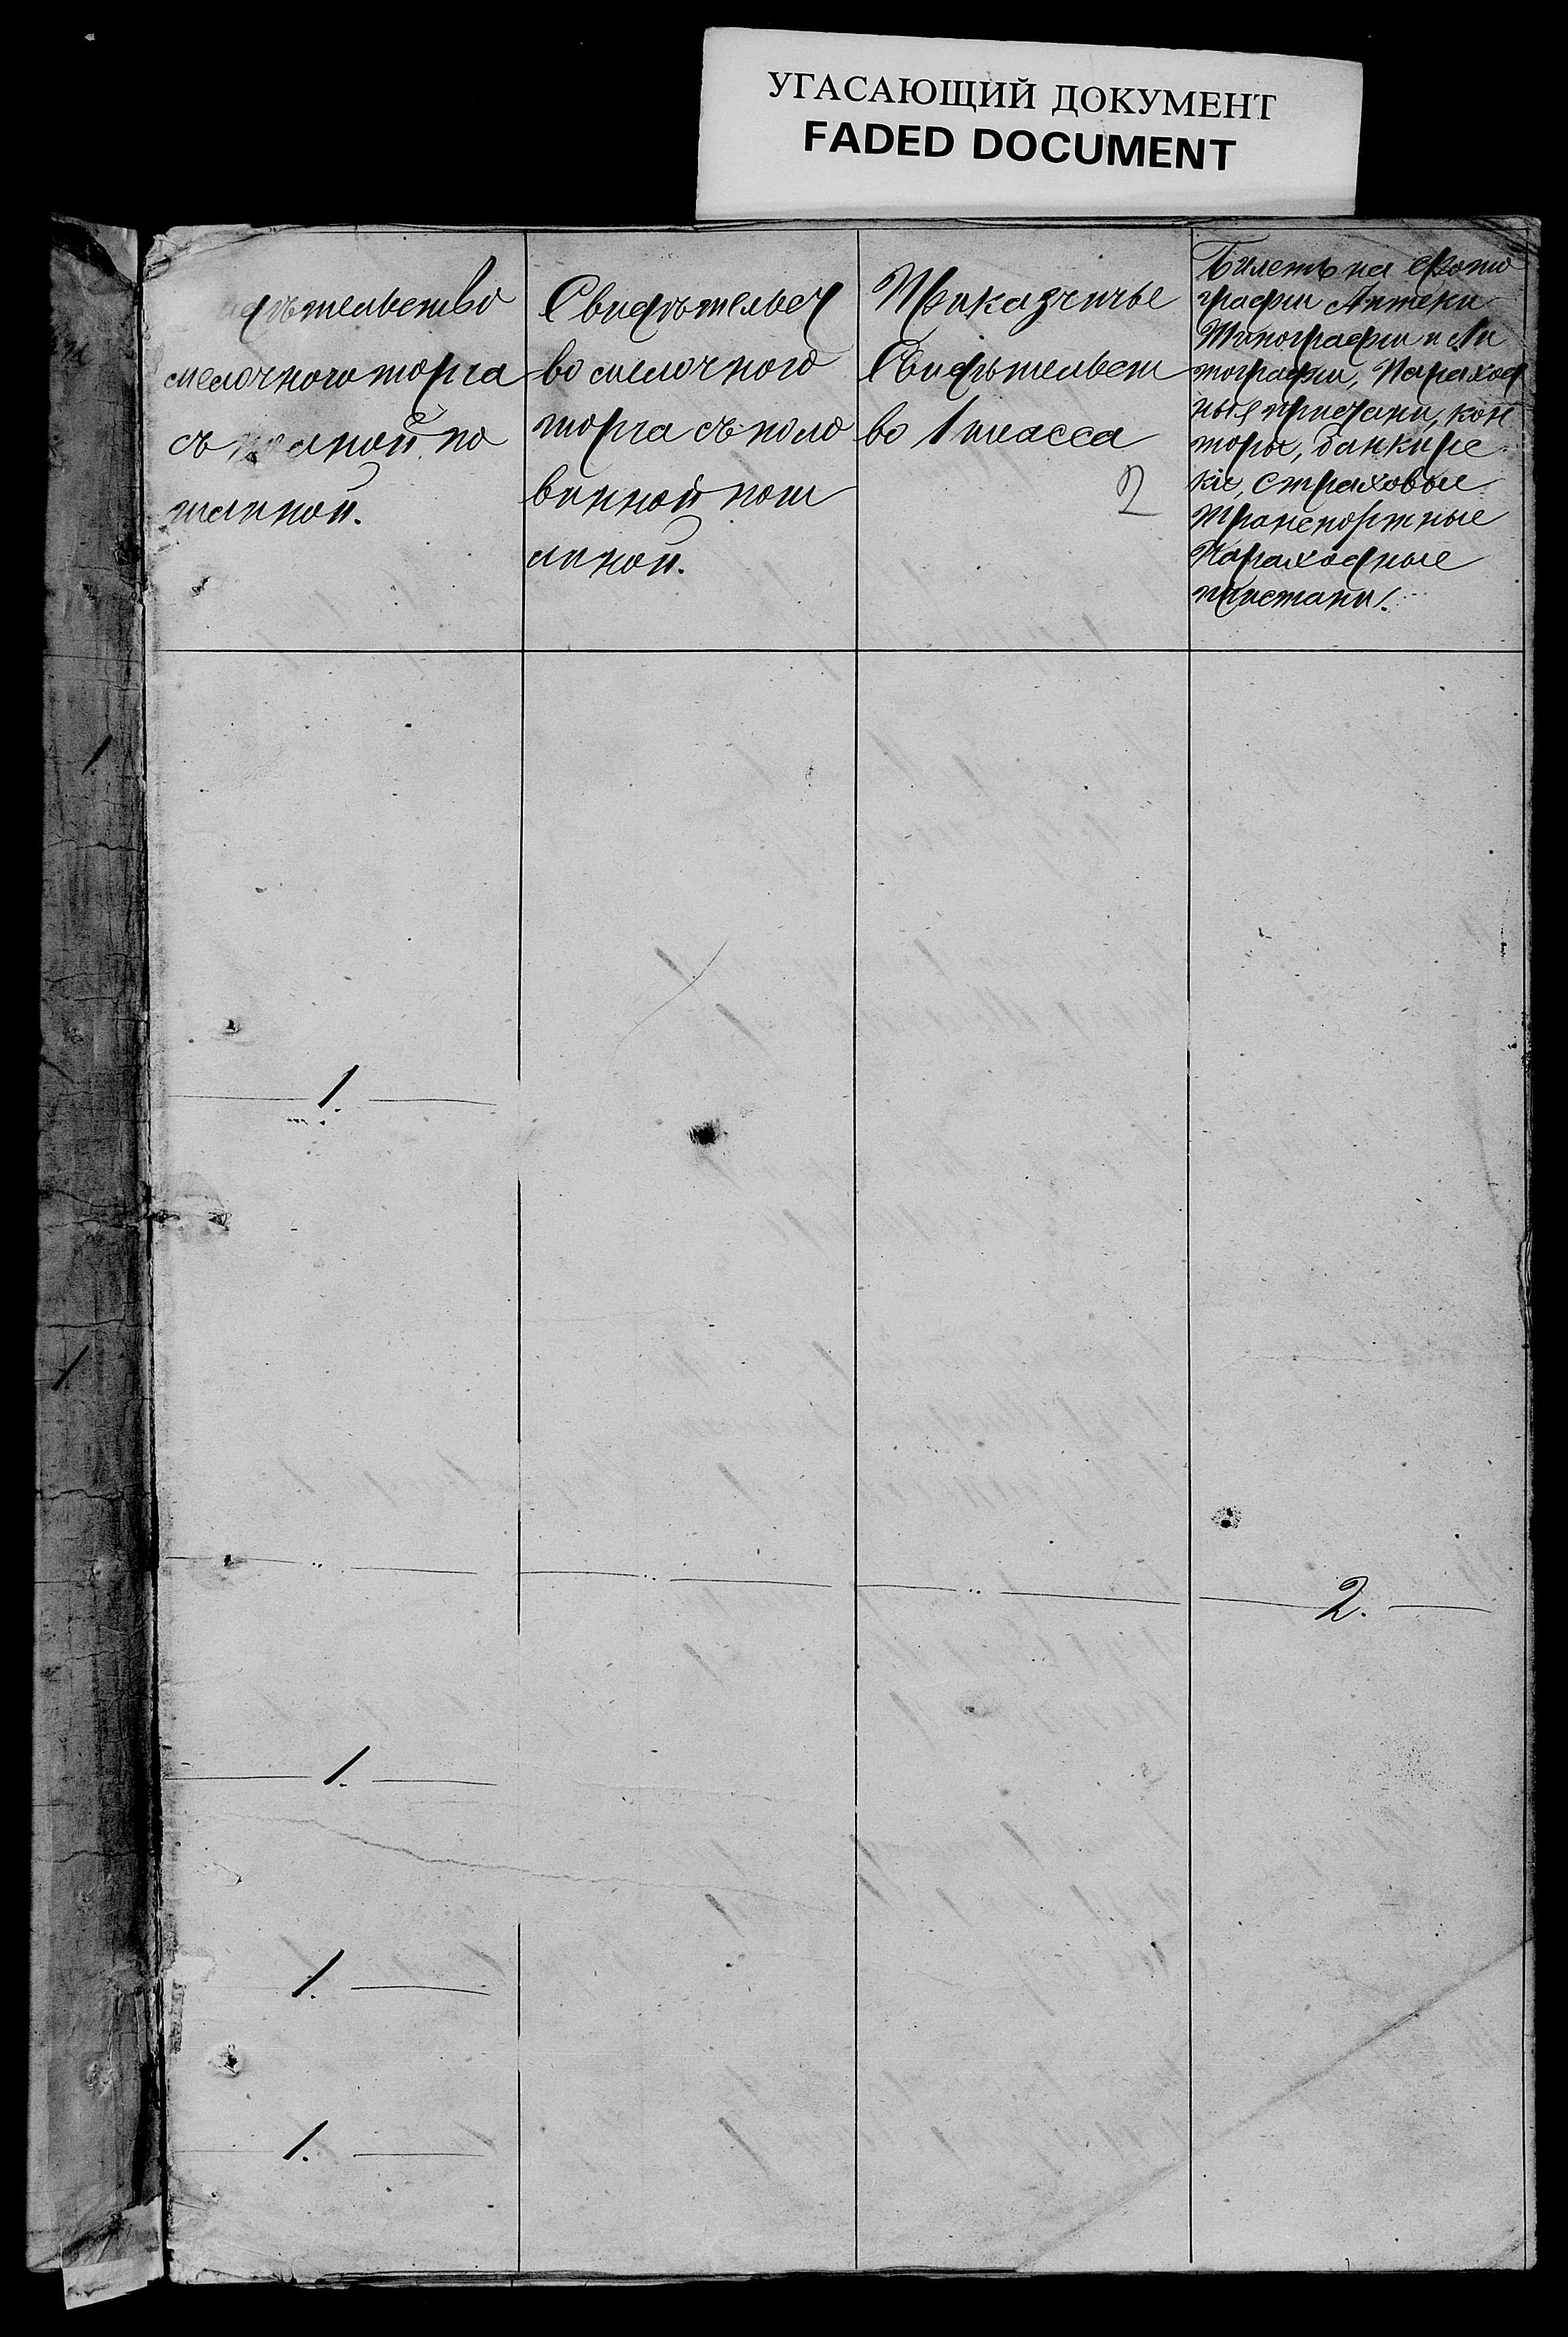 УГАСАЮЩИЙ ДОКУМЕНТ
FADED DOCUMENT
идѣтельство
мелочного торга
съ полной по
шлиной.
Свидѣтельст
во мелочного
торга съ поло
винной пош
линой.
Приказчичье
Свидѣтельст
во 1 класса
2
Билетъ на Фото
графіи Аптеки
Типографіи и Ли
тографіи, Параход
ныя пристани, кон
торы, банкирс
кіе, страховые
Транспортные
Параходные
пристани.
1
1.
1
2.
1.
1.
1.